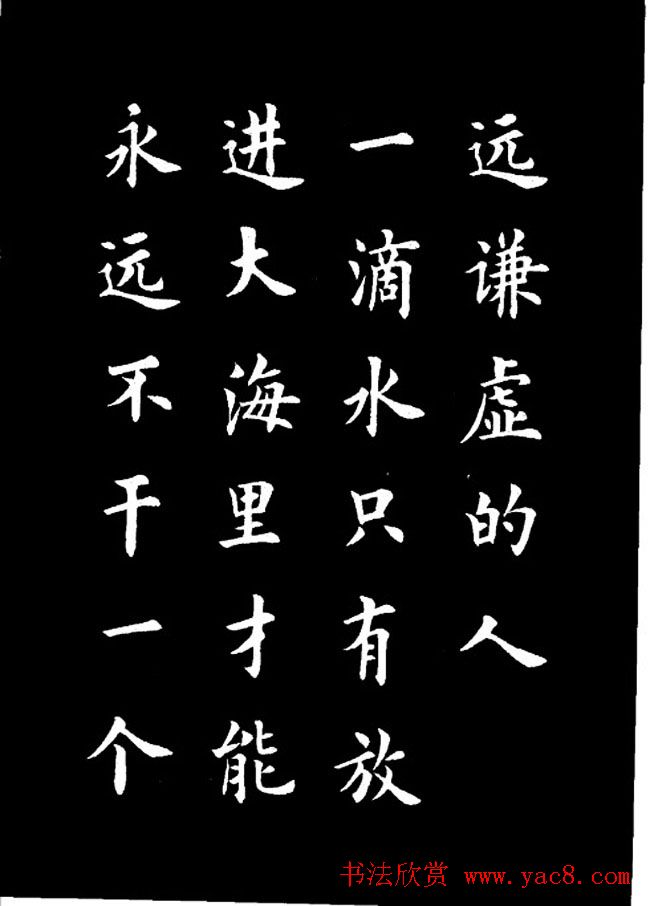 远谦虚的人
一滴水只有放
进大海里才能
永远不干一个
书法欣赏 www.yac8.com